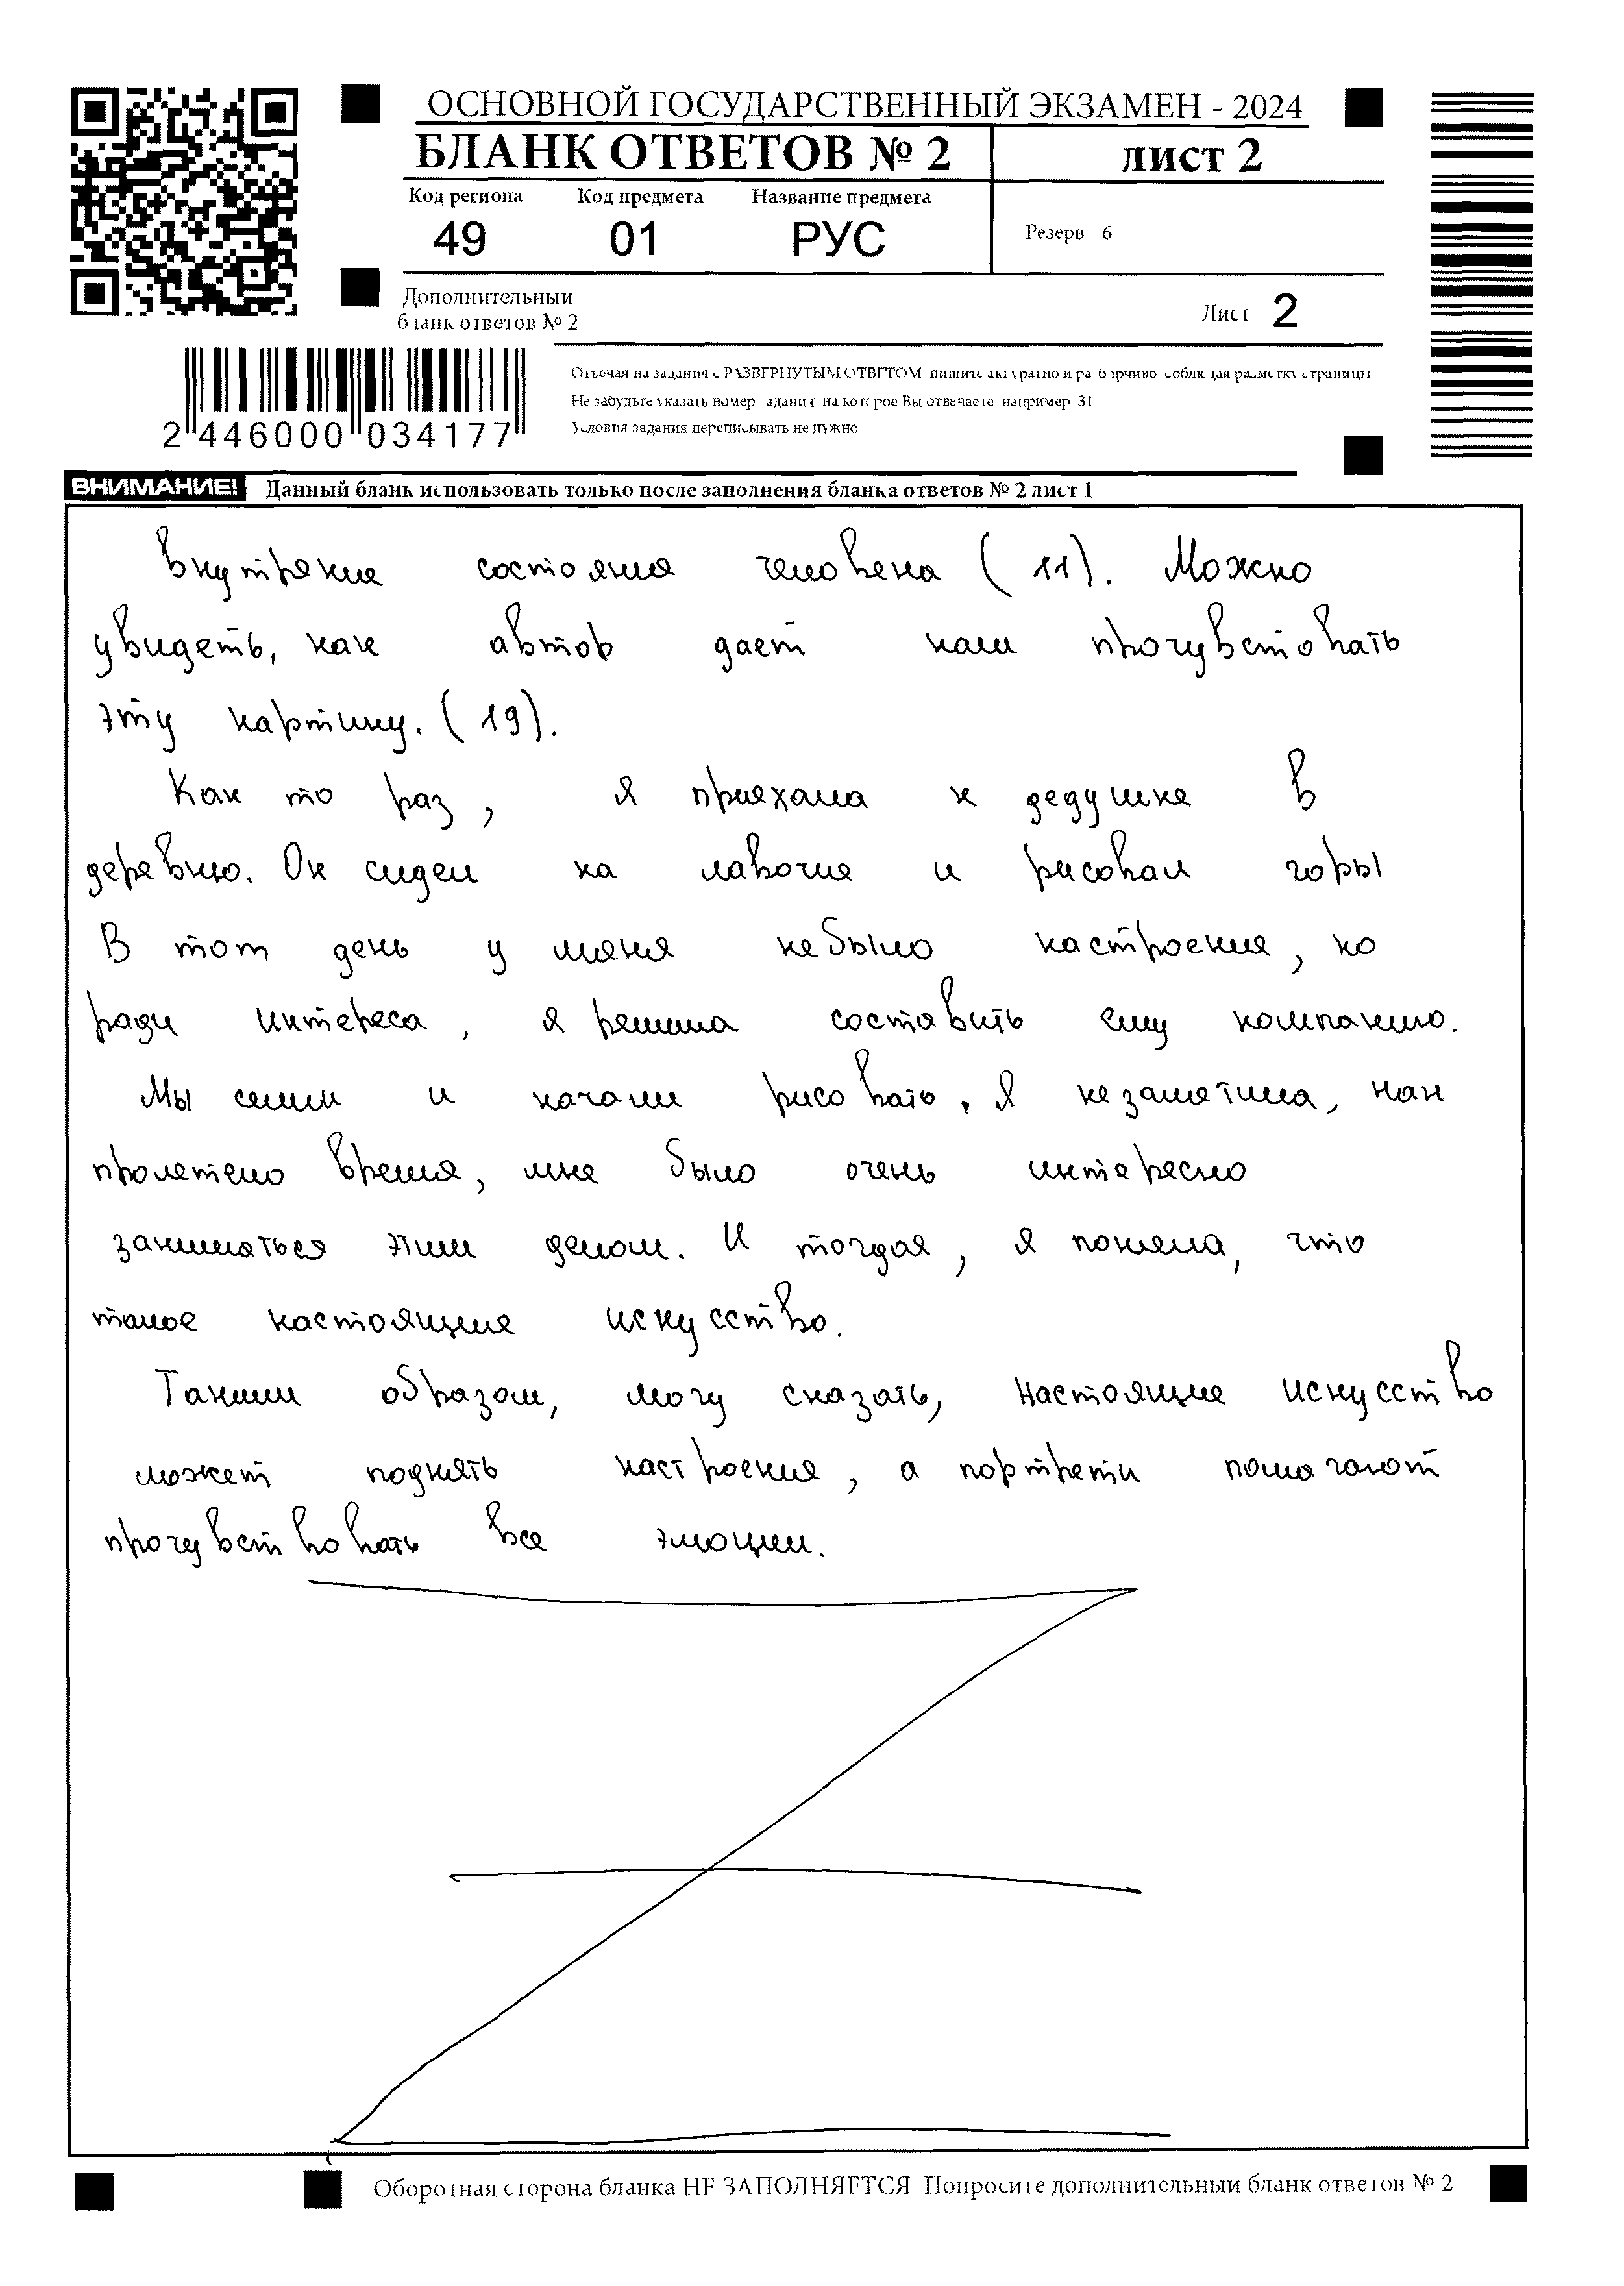 ОСНОВНОЙ ГОСУДАРСТВЕННЫЙ ЭКЗАМЕН - 2024
БЛАНК ОТВЕТОВ № 2
лист 2
Код региона Код предмета Название предмета
49 01 РУС
Резерв 6
Дополнительный
бланк ответов № 2
Лист 2
Отвечая на задания с РАЗВЕРНУТЫМ ОТВЕТОМ пишите аккуратно и разборчиво соблюдая разметку страницы
Не забудьте указать номер задания на которое Вы отвечаете например 31
Условия задания переписывать не нужно
2 446000 034177
ВНИМАНИЕ! Данный бланк использовать только после заполнения бланка ответов № 2 лист 1
внутряние состояния человека (11). Можно
увидеть, как автор дает нам прочувстовать
эту картину. (19).
Как то раз, я приехала к дедушке в
деревню. Он сидел на лавочке и рисовал горы
В тот день у меня небыло настроения, но
ради интереса, я решила составить ему компанию.
Мы сели и начали рисовать. Я незаметила, как
пролетело время, мне было очень интересно
заниматься этим делом. И тогдая, я поняла, что
такое настоящие искусство.
Таким образом, могу сказать, настоящие искусство
может поднять настроения, а портрети помагают
прочувствовать все эмоции.
Оборотная сторона бланка НЕ ЗАПОЛНЯЕТСЯ Попросите дополнительный бланк ответов № 2